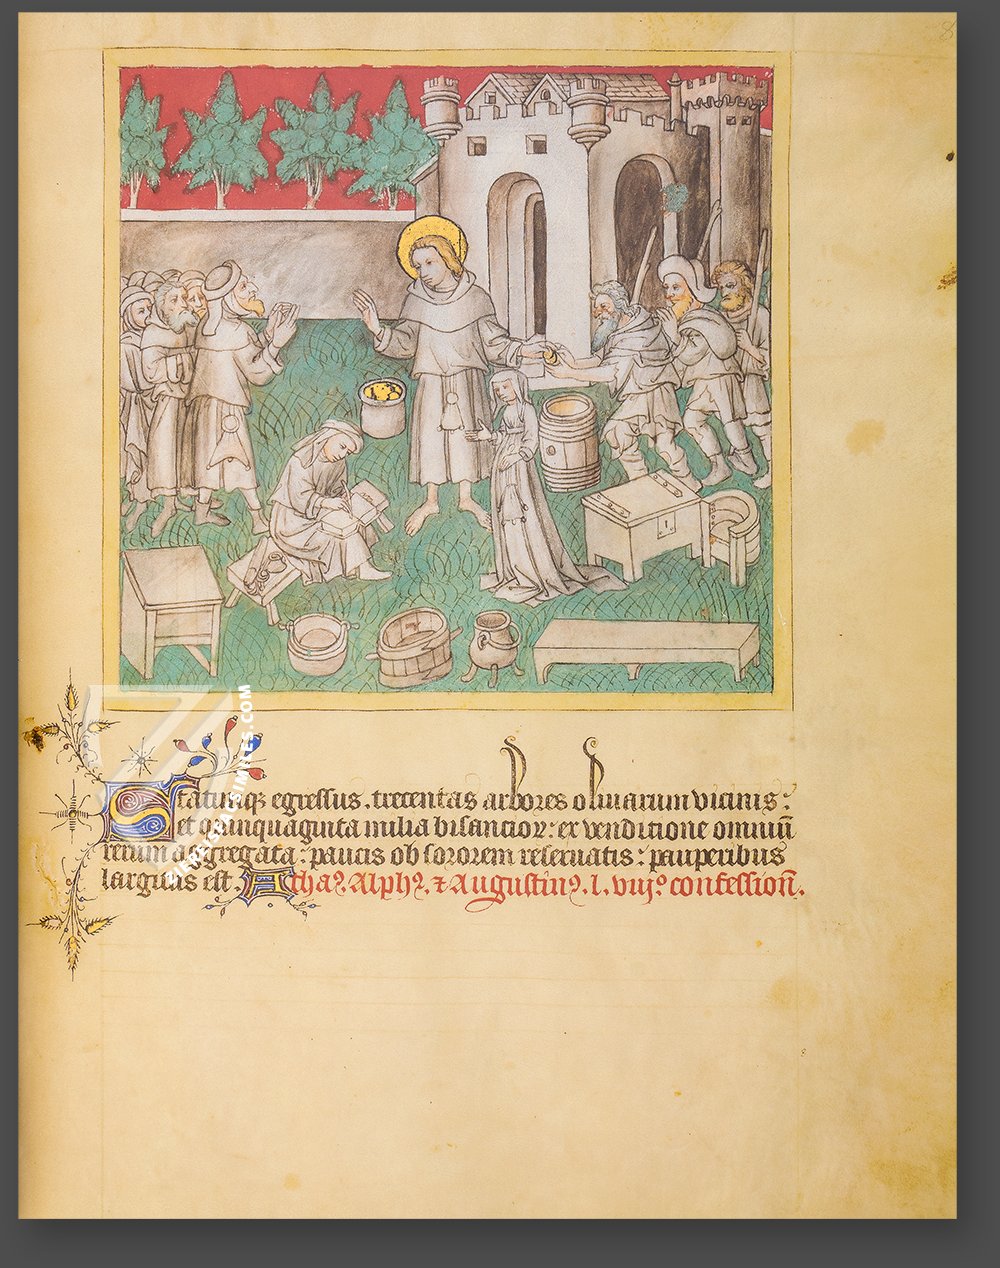 8
Statimqꝫ egressus. trecentas arbores oliuarum vicinis:
et quinquaginta milia bisancioꝝ: ex venditione omniū
rerum aggregata: paucis ob sororem reseruatis: pauperibus
largitus est. Athaꝰ. Alphꝰ. ⁊ Augustinꝰ. l. viijº confession̄.
ZIEREIS FACSIMILES.COM